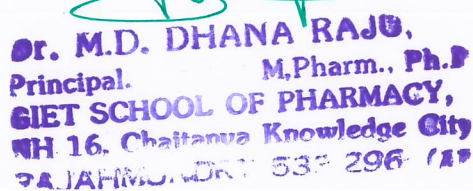 Dr. M.D. DHANA RAJU,
Principal. M,Pharm., Ph.D
GIET SCHOOL OF PHARMACY,
NH 16, Chaitanya Knowledge City
RAJAHMUNDRY 533 296 (AP